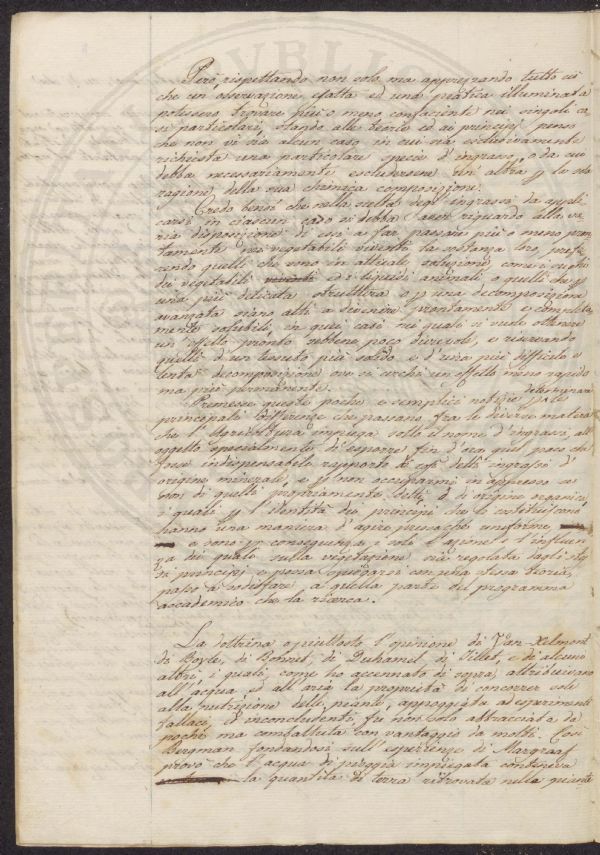 Però, rispettando non solo, ma apprezzando tutto ciò
che un osservazione esatta ed una pratica illuminata
potessero trovare più o meno confaciente nei singoli ca,
si particolari, stando alle teorie ed ai principj penso
che non vi sia alcun caso in cui sia esclusivamente
richiesta una particolare specie d'ingrasso, o da cui
debba necessariamente escludersene un'altra p la sola
ragione della sua chimica composizione.
Credo bensì che nella scelta degli ingrassi da appli
carsi in ciascun caso si debba aver riguardo alla va
ria disposizione di essi a far passare più o meno pron
tamente nei vegetabili viventi la sostanza loro, prefe
rendo quelli che sono in attuale soluzione come i succhi
dei vegetabili ed i liquidi animali, o quelli che p
una più delicata struttura o p una decomposizione
avanzata siano atti a divenire prontamente e completa
mente solubili, in quei casi nei quali si vuole ottenere
un effetto pronto sebbene poco durevole, e riservando
quelli d'un tessuto più solido e d'una più difficile e
lenta decomposizione ove si cerchi un effetto meno rapido
ma più permanente.
Premesse queste poche e semplici notizie p le determinare
principali differenze che passano fra le diverse materie
che l'Agricoltura impiega sotto il nome d'ingrassi, all'
oggetto specialmente di esporre fin d'ora quel poco che
fosse indispensabile rapporto ai così detti ingrassi d'
origine minerale, e p non occuparmi in appresso se
non di quelli propriamente detti, o di origine organica,
i quali p l'identità dei principj che li costituiscono
hanno una maniera d'agire pressochè uniforme,
e sono p conseguenza i soli l'azione e l'influen
za dei quali sulla vegetazione sia regolata dagli stes
si principj e possa spiegarsi con una stessa teoria,
passo a sodisfare a quella parte del programma
accademico che la ricerca.
La dottrina o piuttosto l'opinione di Van-Helmont
di Boyle, di Bonnet, di Duhamel, di Tillet, e di alcuni
altri, i quali, come ho accennato di sopra, attribuivano
all'acqua ed all'aria la proprietà di concorrer soli
alla nutrizione delle piante, appoggiata ad esperimenti
fallaci, ed inconcludenti, fu non solo abbracciata da
pochi ma combattuta con vantaggio da molti. Così
Bergman fondandosi sull'esperienze di Margraaf
provò che l'acqua di pioggia impiegata conteneva
la quantità di terra ritrovata nelle piante